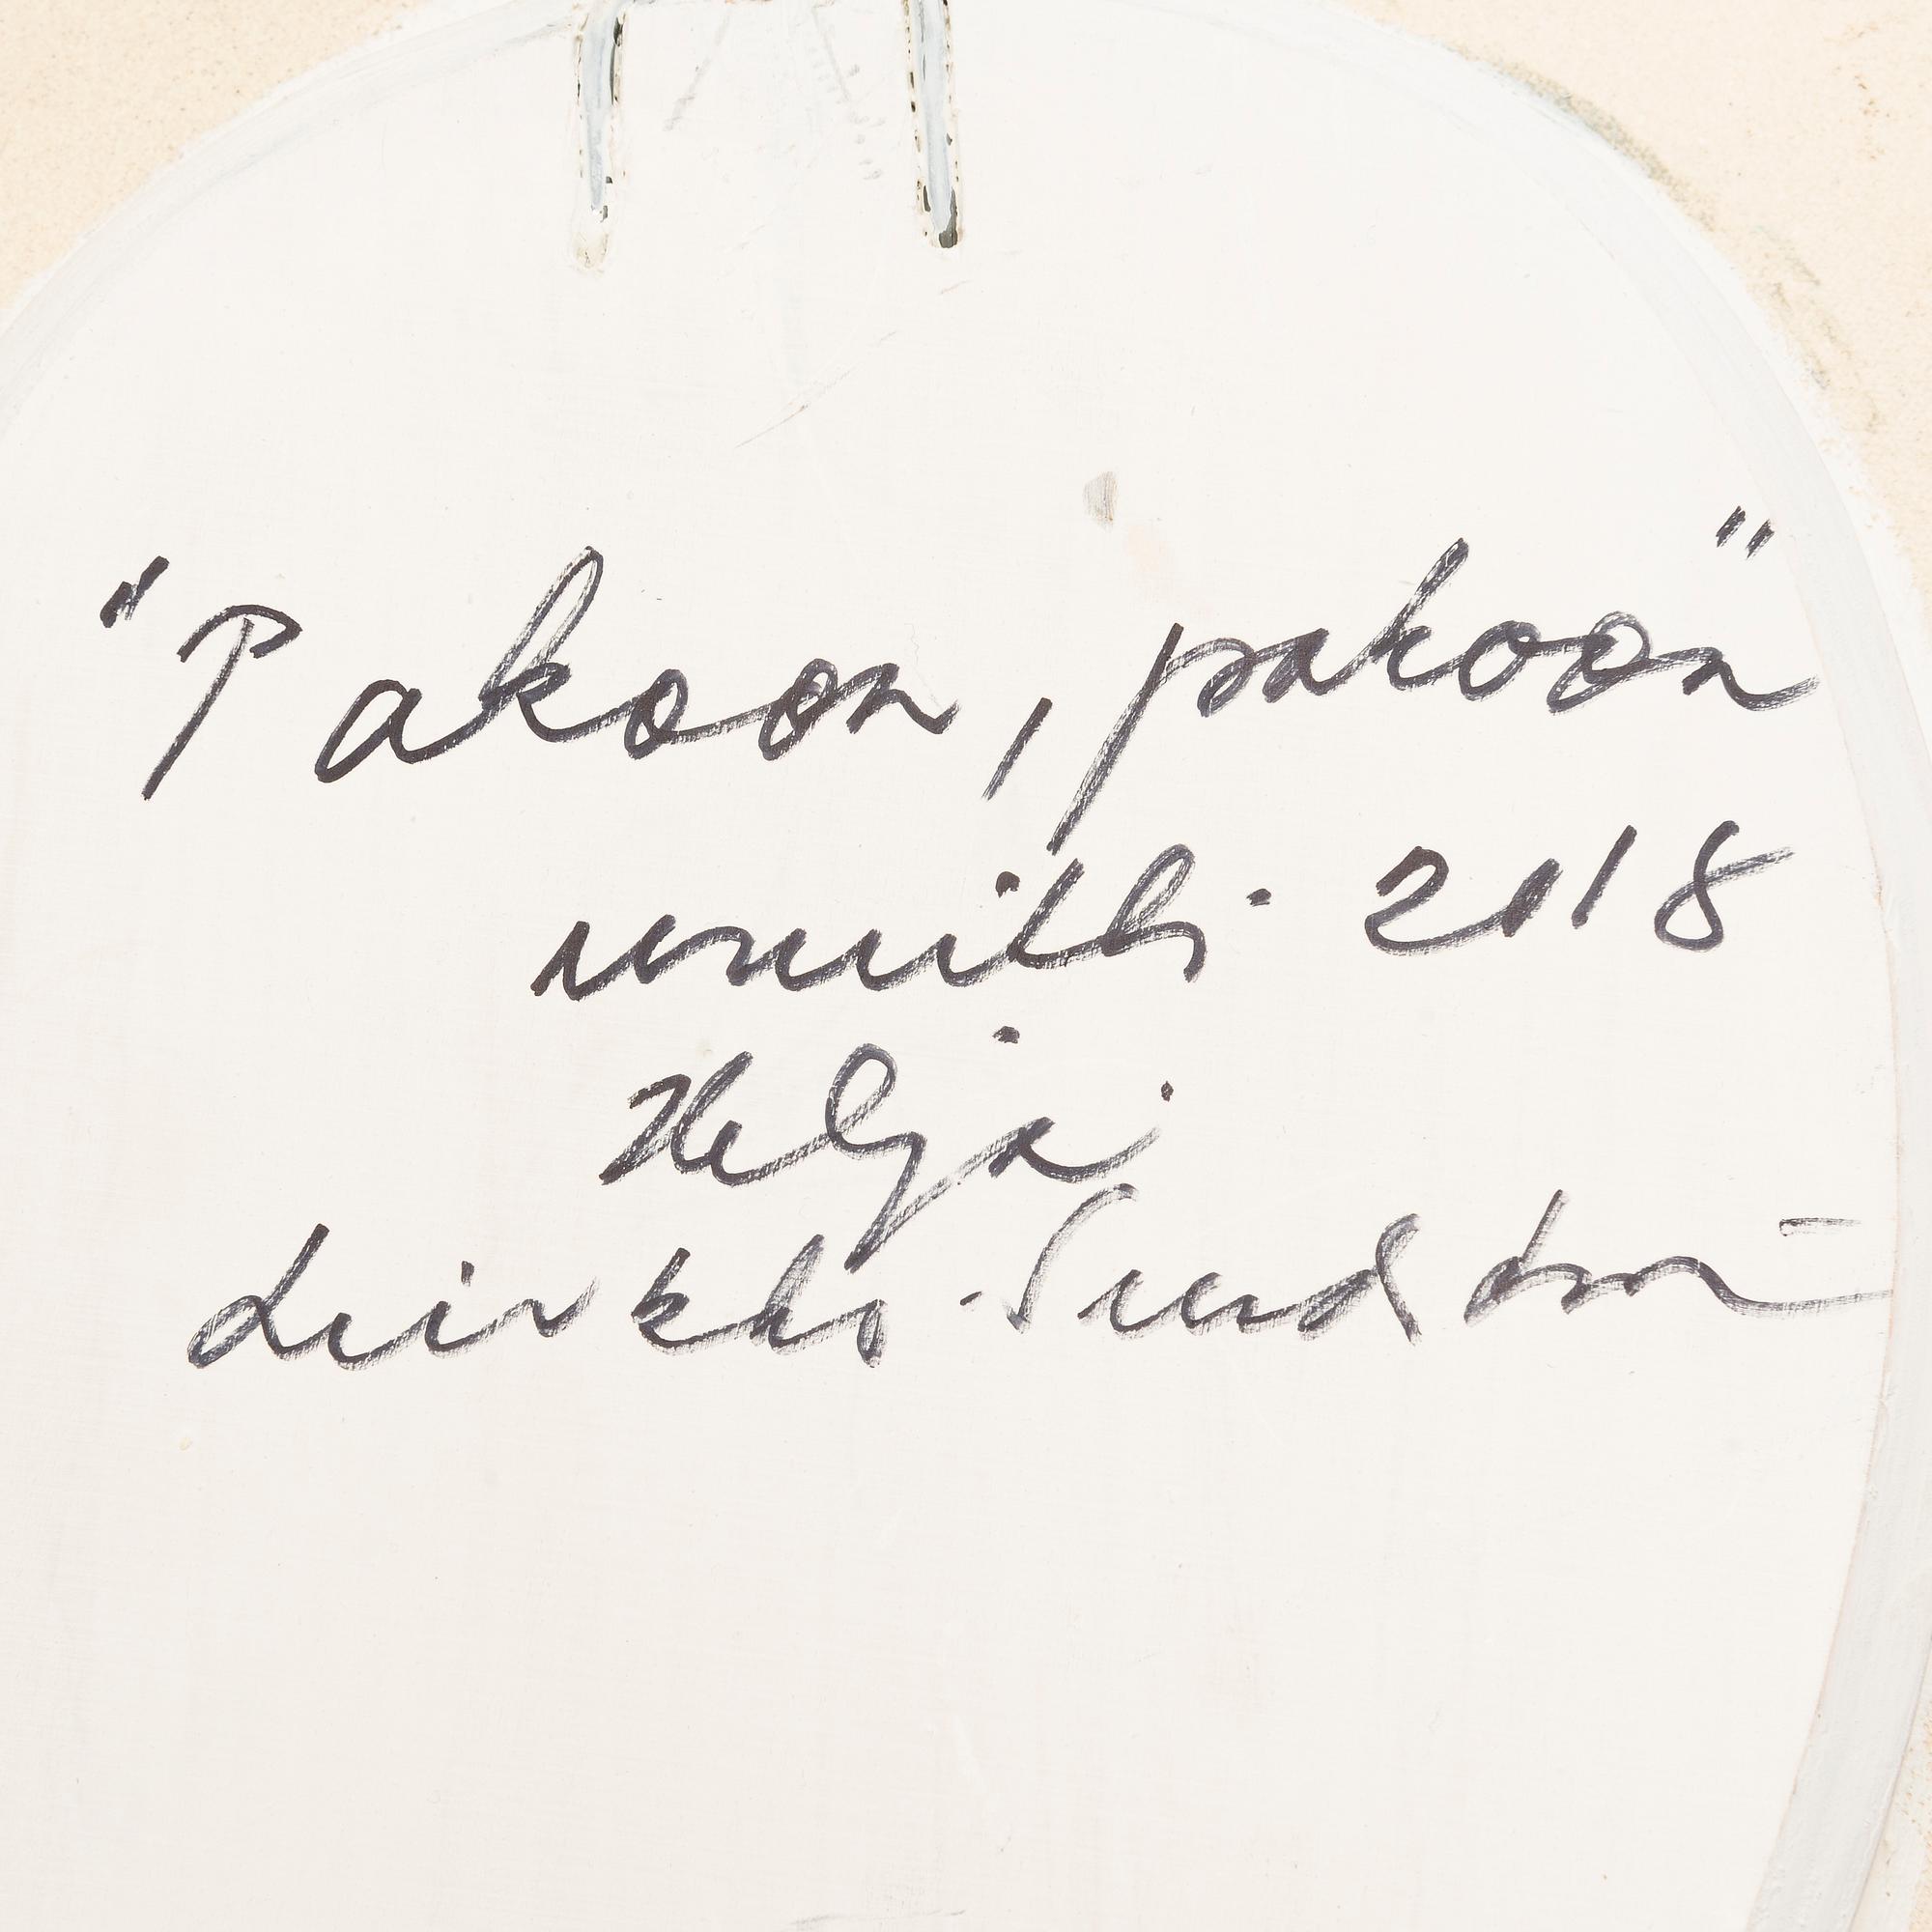 "Pakoon, pakoon"
uniikki 2018
Heljä
Liukko-Sundström